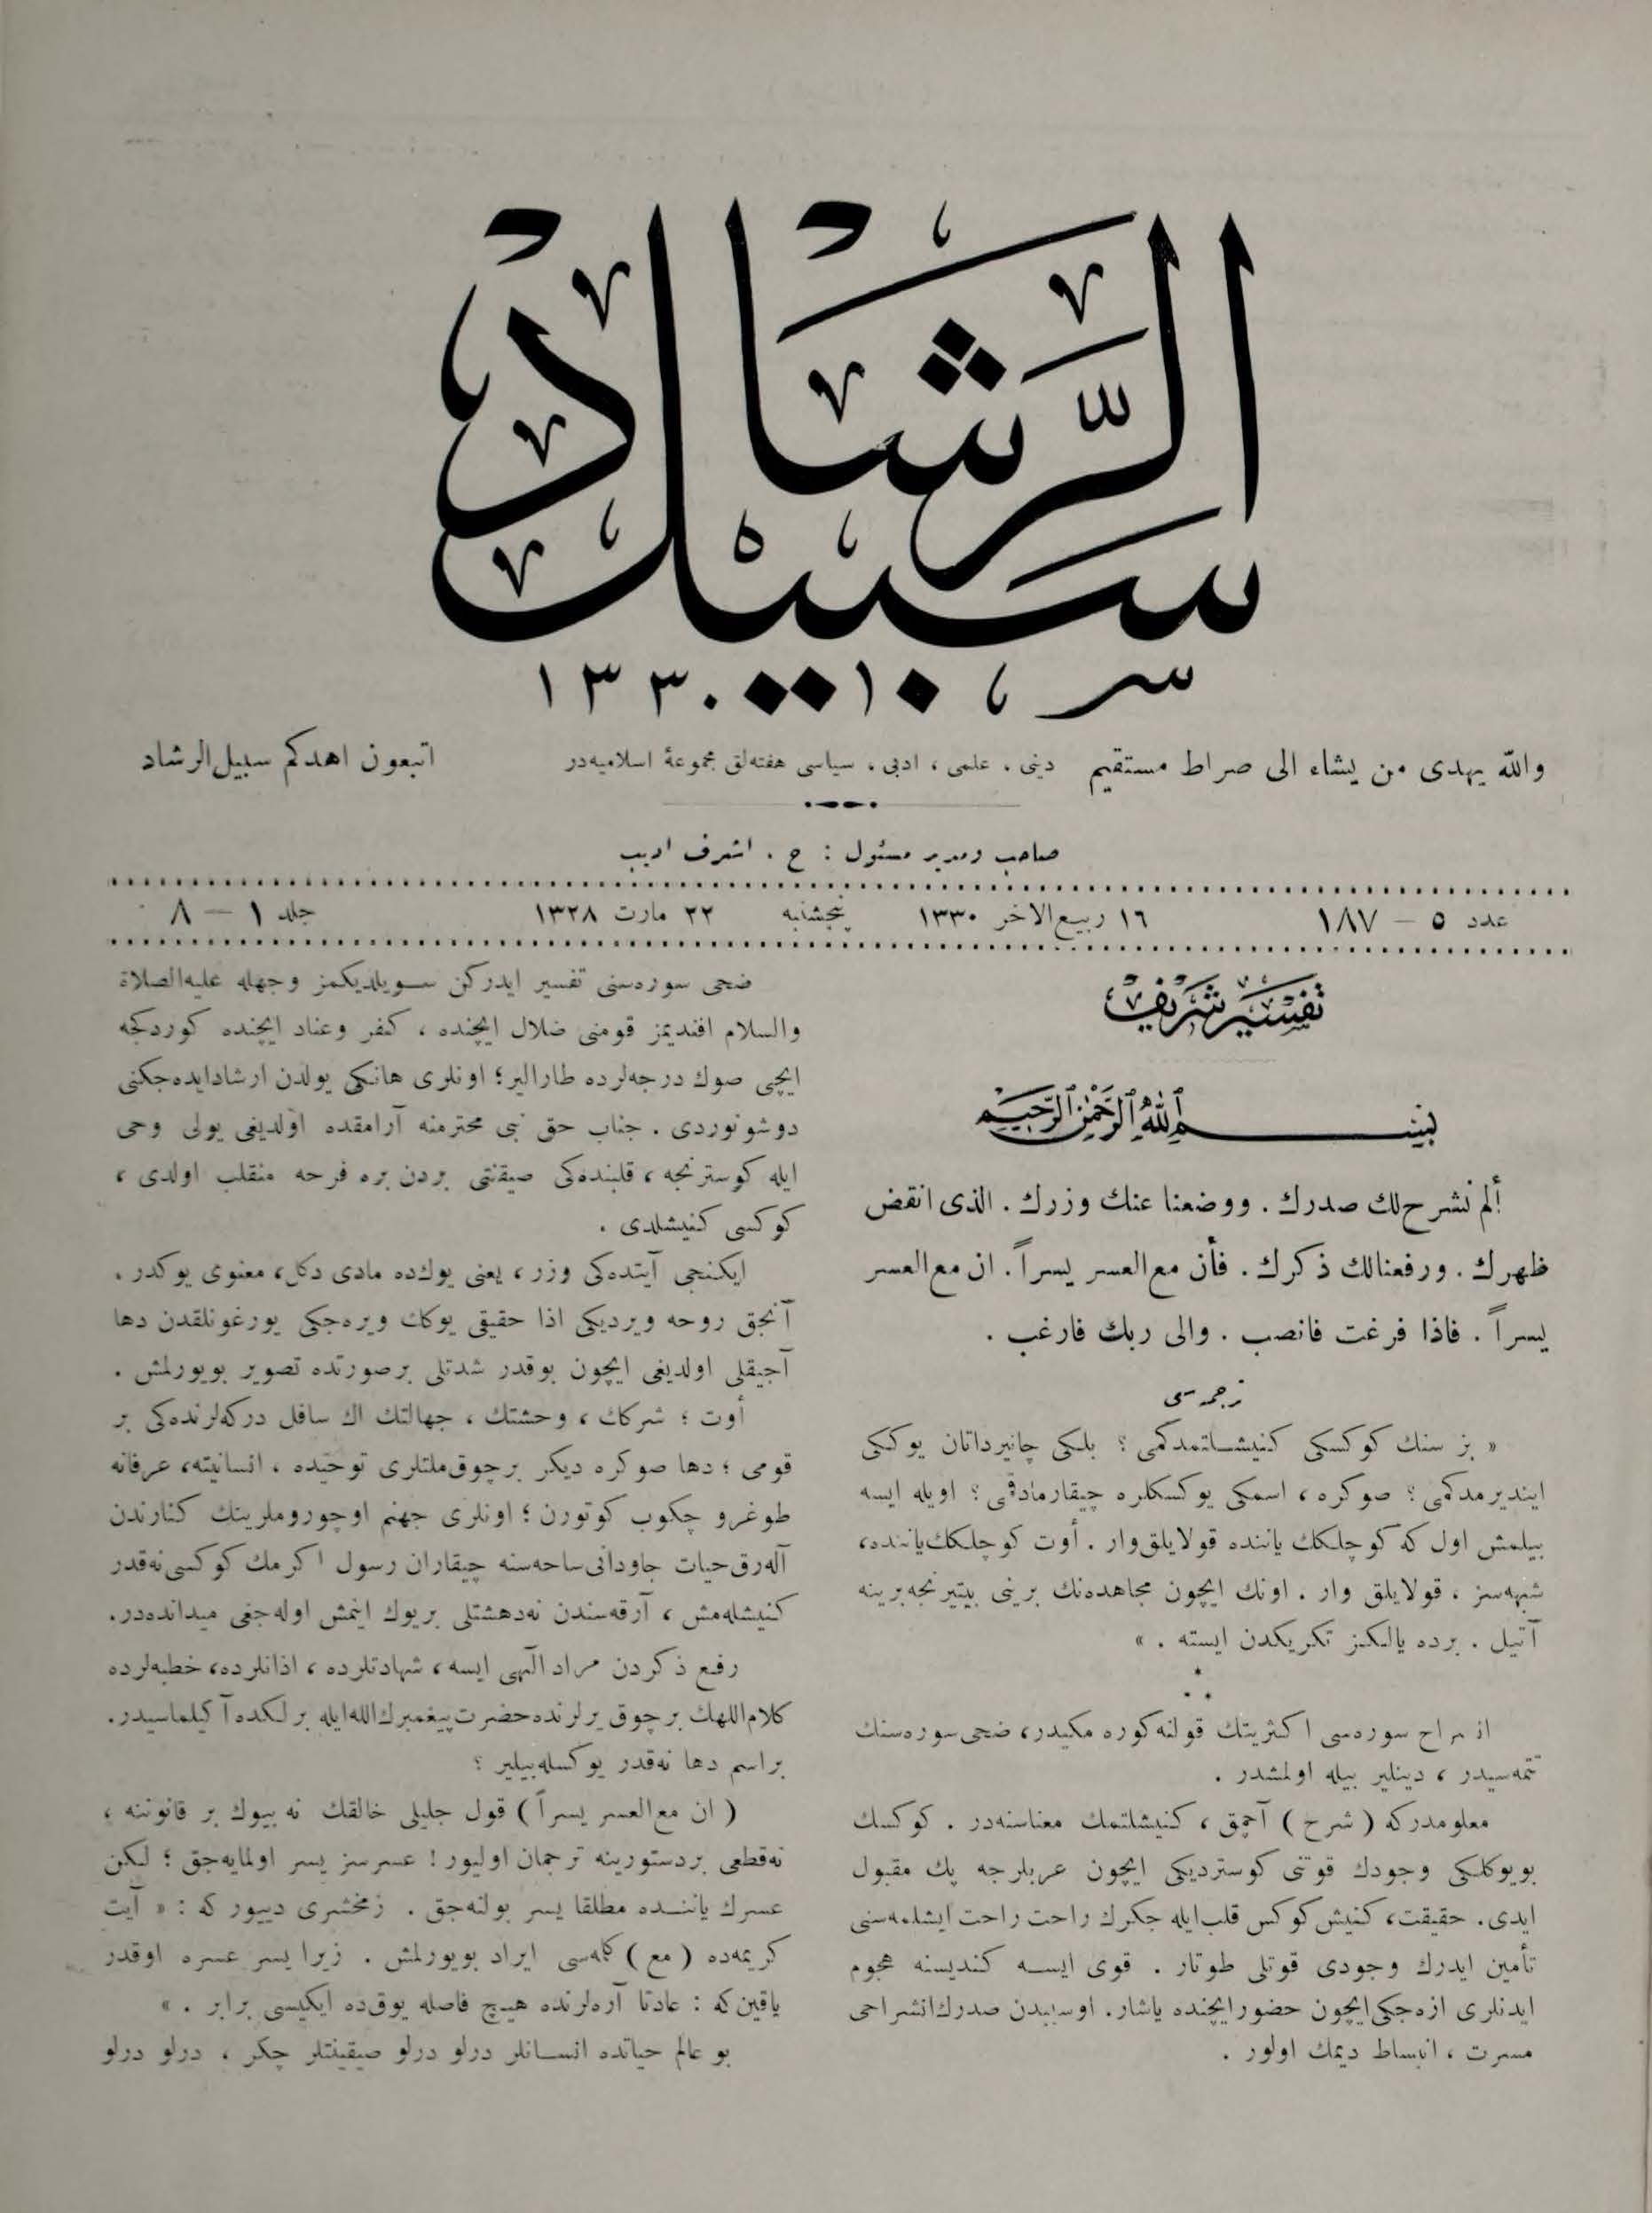 سبيل الرشاد
١٣٣٠
والله يهدى من يشاء الى صراط مستقيم
دينى ، علمى ، ادبى ، سياسى هفته‌لق مجموعهٔ اسلاميه‌در
اتبعون اهدكم سبيل الرشاد
صاحب ومدير مسئول : ح . اشرف اديب
عدد ٥ – ١٨٧
١٦ ربيع الاخر ١٣٣٠
پنجشنبه
٢٢ مارت ١٣٢٨
جلد ١ – ٨
تفسير شريف
بسم الله الرحمن الرحيم
ألم نشرح لك صدرك . ووضعنا عنك وزرك . الذى انقض
ظهرك . ورفعنالك ذكرك . فأن مع العسر يسراً . ان مع العسر
يسراً . فاذا فرغت فانصب . والى ربك فارغب .
ترجمه‌سى
« بز سنك كوكسكى كنيشــاتمدكمى ؟ بلكى چاتيرداتان يوككى
اينديرمدكمى ؟ صوكره ، اسمكى يوكسكلره چيقارمادقمى ؟ اويله ايسه
بيلمش اول كه كوچلكك ياننده قولايلق وار . أوت كوچلكك ياننده ،
شبهه‌سز ، قولايلق وار . اونك ايچون مجاهده‌نك برينى بيتيرنجه برينه
آتيل . برده يالكز تكريكدن ايسته . »
*
* *
انشراح سوره‌سى اكثريتك قولنه كوره مكيدر ، ضحى سوره‌سنك
تتمه‌سيدر ، دينلير بيله اولمشدر .
معلومدركه ( شرح ) آچمق ، كنيشلتمك معناسنه‌در . كوكسك
بويوكلكى وجودك قوتنى كوسترديكى ايچون عربلرجه پك مقبول
ايدى . حقيقت ، كنيش كوكس قلب ايله جكرك راحت راحت ايشلمه‌سنى
تأمين ايدرك وجودى قوتلى طوتار . قوى ايســه كنديسنه هجوم
ايدنلرى ازه‌جكى ايچون حضور ايچنده ياشار . اوسببدن صدرك انشراحى
مسرت ، انبساط ديمك اولور .
ضحى سوره‌سنى تفسير ايدركن ســويلديكمز وجهله عليه الصلاة
والسلام افنديمز قومنى ضلال ايچنده ، كفر وعناد ايچنده كوردكجه
ايچى صوك درجه‌لرده طارالير ؛ اونلرى هانكى يولدن ارشاد ايده‌جكنى
دوشونوردى . جناب حق نبى محترمنه آرامقده اولديغى يولى وحى
ايله كوسترنجه ، قلبنده‌كى صيقنتى بردن بره فرحه منقلب اولدى ،
كوكسى كنيشلدى .
ايكنجى آيتده‌كى وزر ، يعنى يوك‌ده مادى دكل ، معنوى يوكدر .
آنجق روحه ويرديكى اذا حقيقى يوكك ويره‌جكى يورغونلقدن دها
آجيقلى اولديغى ايچون بوقدر شدتلى برصورتده تصوير بويورلمش .
أوت ؛ شركك ، وحشتك ، جهالتك اك سافل دركه‌لرنده‌كى بر
قومى ؛ دها صوكره ديكر برچوق ملتلرى توحيده ، انسانيته ، عرفانه
طوغرو چكوب كوتورن ؛ اونلرى جهنم اوچوروملرينك كنارندن
آله‌رق حيات جاودانى ساحه‌سنه چيقاران رسول اكرمك كوكسى نه‌قدر
كنيشله‌مش ، آرقه‌سندن نه‌دهشتلى بريوك اينمش اوله‌جغى ميدانده‌در .
رفع ذكردن مراد الٓهى ايسه ، شهادتلرده ، اذانلرده ، خطبه‌لرده
كلام اللهك برچوق يرلرنده حضرت پيغمبرك الله ايله برلكده آكيلماسيدر .
براسم دها نه‌قدر يوكسله‌بيلير ؟
( ان مع العسر يسراً ) قول جليلى خالقك نه بيوك بر قانوننه ،
نه‌قطعى بردستورينه ترجمان اوليور ! عسرسز يسر اولمايه‌جق ؛ لكن
عسرك ياننــده مطلقا يسر بولنه‌جق . زمخشرى دييور كه : « آيت
كريمه‌ده ( مع ) كلمه‌سى ايراد بويورلمش . زيرا يسر عسره اوقدر
ياقين كه : عادتا آره‌لرنده هيچ فاصله يوق‌ده ايكيسى برابر . »
بو عالم حياتده انســانلر درلو درلو صيقينتلر چكر ، درلو درلو